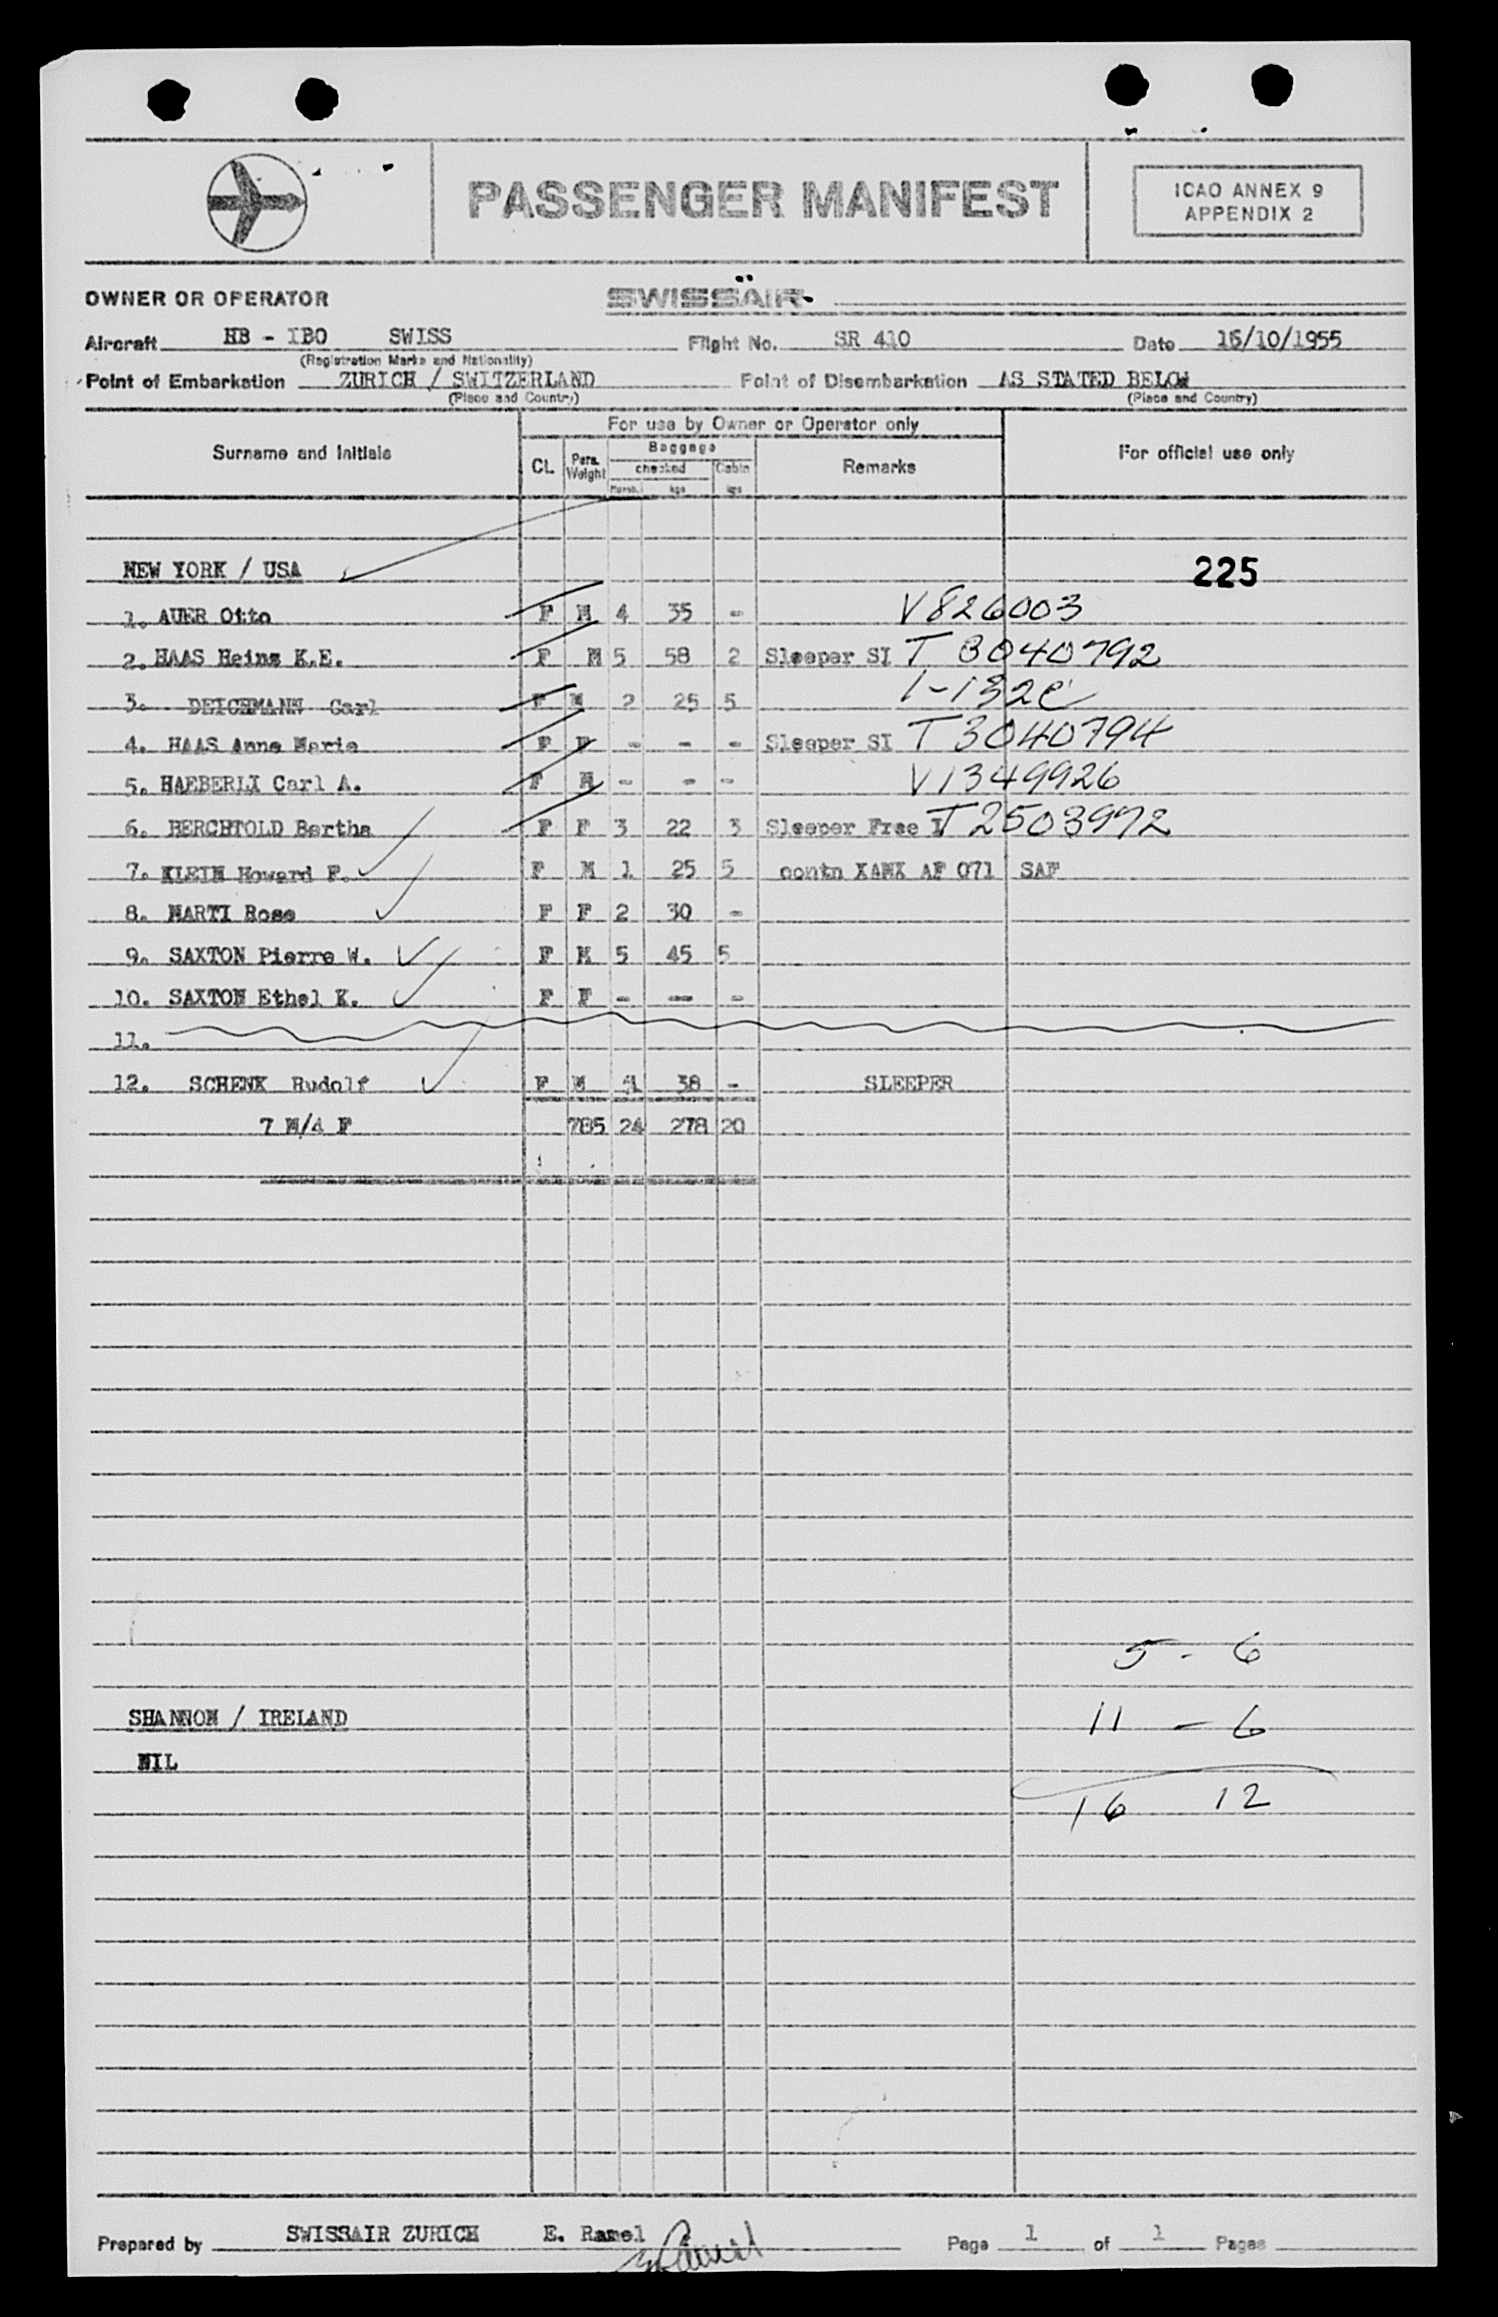 PASSENGER MANIFEST
ICAO ANNEX 9
APPENDIX 2
OWNER OR OPERATOR SWISSAIR
Aircraft HB - IBO SWISS Flight No. SR 410 Date 16/10/1955
(Registration Marks and Nationality)
Point of Embarkation ZURICH / SWITZERLAND Point of Disembarkation AS STATED BELOW
(Place and Country) (Place and Country)
For use by Owner or Operator only
Surname and Initials CL. Pers. Weight Baggage Remarks For official use only
checked Cabin
Numb. kgs kgs
NEW YORK / USA 225
1. AUER Otto F M 4 35 - V826003
2. HAAS Heinz K.E. F M 5 58 2 Sleeper SI T 3040792
3. DEICHMANN Carl F M 2 25 5 1-132c
4. HAAS Anne Marie F F - - - Sleeper SI T3040794
5. HAEBERLI Carl A. F M - - - V1349926
6. BERCHTOLD Bertha F F 3 22 3 Sleeper Free T2503972
7. KLEIN Howard F. F M 1 25 5 contn XANX AF 071 SAF
8. MARTI Rose F F 2 30 -
9. SAXTON Pierre W. F M 5 45 5
10. SAXTON Ethel K. F F - - -
11.
12. SCHENK Rudolf F M 38 - SLEEPER
7 M/4 F 785 24 278 20
5 - 6
SHANNON / IRELAND 11 - 6
NIL
16 12
Prepared by SWISSAIR ZURICH E. Ramel Page 1 of 1 Pages